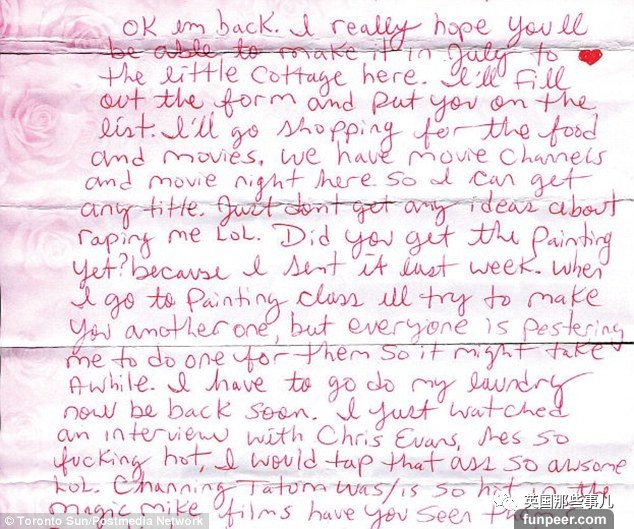 OK im back. I really hope you'll
be able to make it in July to
the little cottage here. I'll fill
out the form and put you on the
list. I'll go shopping for the food
and movies, we have movie channels
and movie night here so I can get
any title. Just dont get any ideas about
raping me LOL. Did you get the painting
yet? because I sent it last week. When
I go to painting class ill try to make
you another one, but everyone is pestering
me to do one for them so it might take
Awhile. I have to go do my laundry
now be back soon. I just watched
an interview with Chris Evans, hes so
fucking hot, I would tap that ass so awsome
LoL. Channing Tatum was/is so hot in the
magic mike films have you seen them
英国那些事儿
© Toronto Sun/Postmedia Network
funpeer.com